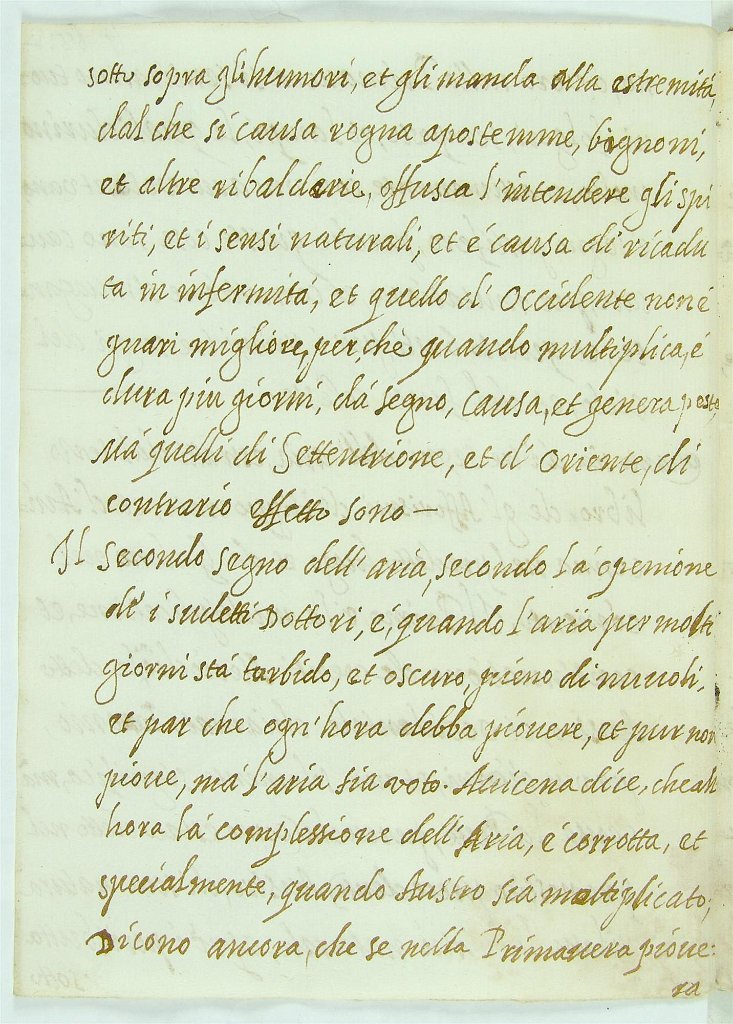 sotto sopra gli humori, et gli manda alla estremitá,
dal che si causa rogna apostemme, bognoni,
et altre ribalderie, offusca l'intendere gli spi
riti, et i sensi naturali, et é causa di ricadu
ta in infermitá, et quello d' Occidente non é
guari migliore, perche quando multiplica, é
dura piu giorni, dá segno, causa, et genera peste
Má quelli di Settentrione, et d' Oriente, di
contrario effetto sono —
Il secondo segno dell' aria, secondo la openione
de i sudetti Dottori, é, quando l'aria per molti
giorni stá torbido, et oscuro, pieno di nuuoli,
et par che ogn' hora debba piouere, et pur non
pioue, má l'aria sia voto. Auicena dice, che all
hora la complessione dell' Aria, é corrotta, et
specialmente, quando Austro sia moltiplicato;
Dicono ancora, che se nella Primauera pioue:
ra